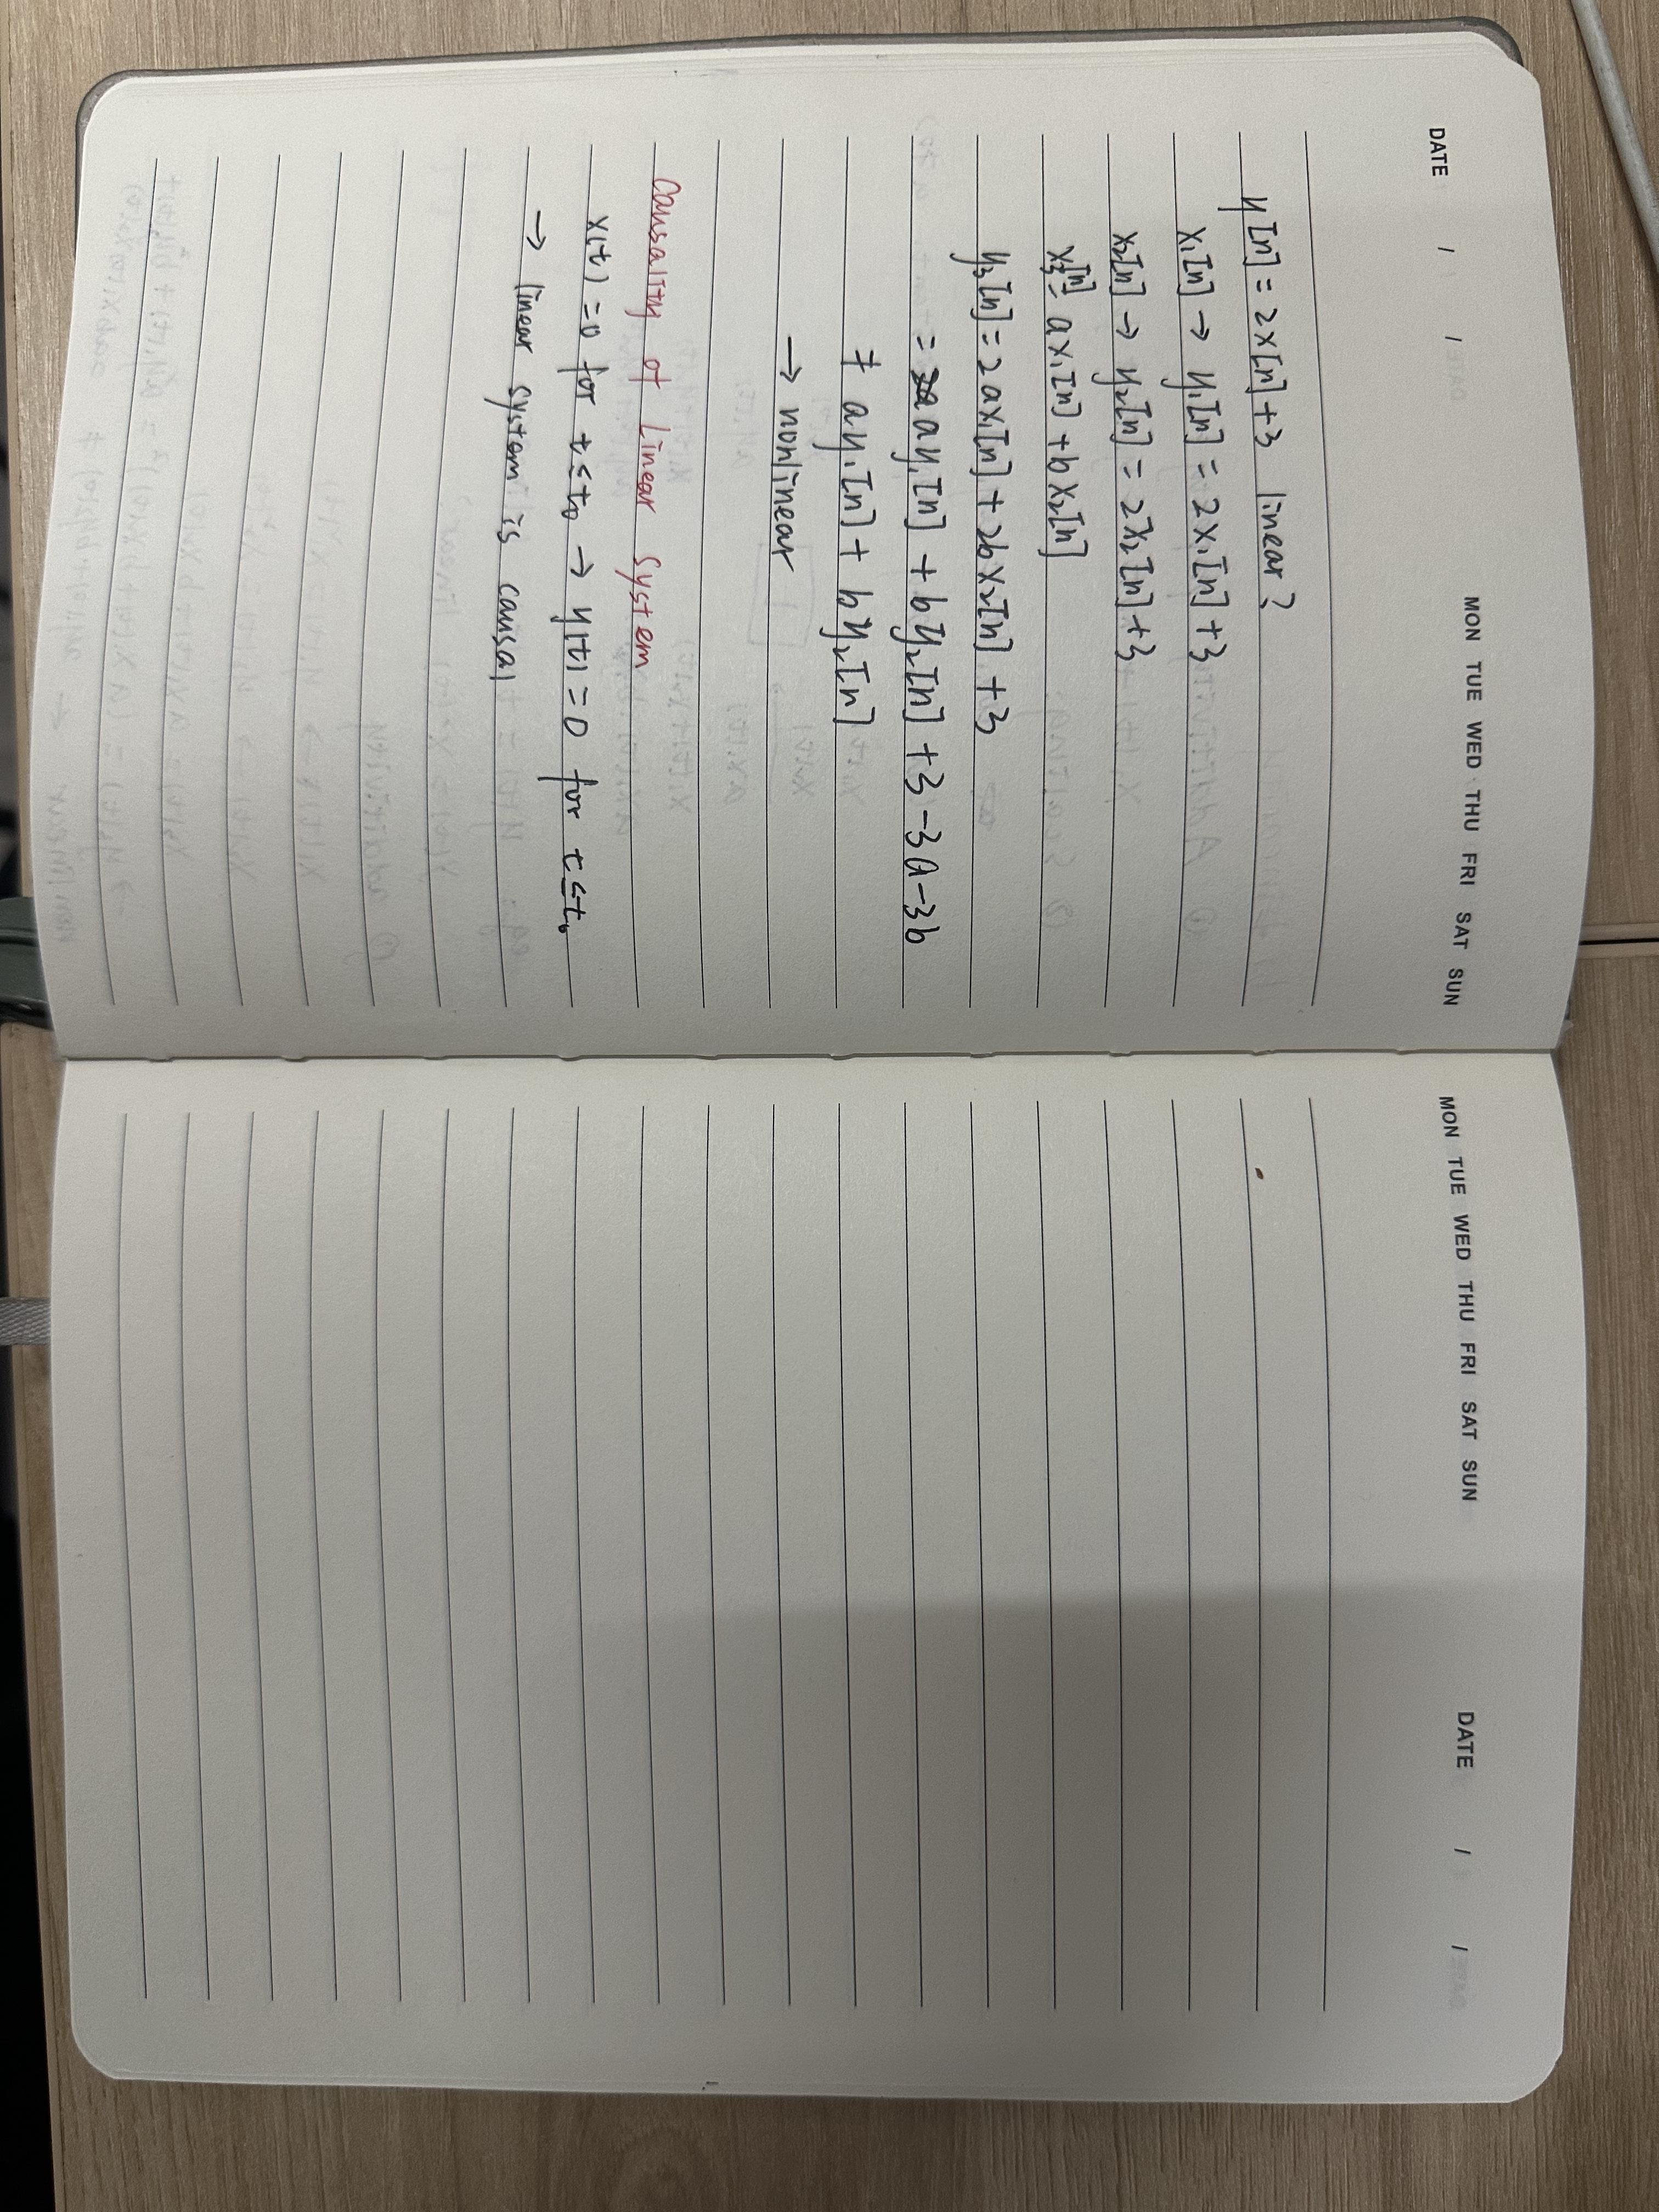 DATE / / MON TUE WED THU FRI SAT SUN
y[n] = 2x[n]+3 linear?
x₁[n] → y₁[n] = 2x₁[n]+3
x₂[n] → y₂[n] = 2x₂[n]+3
x₃[n] = ax₁[n] + bx₂[n]
y₃[n] = 2ax₁[n] + 2bx₂[n] + 3
= ay₁[n] + by₂[n] + 3 - 3a - 3b
≠ ay₁[n] + by₂[n]
→ nonlinear
Causality of Linear System
x(t) = 0 for t≤t₀ → y(t) = 0 for t≤t₀
→ linear system is causal
MON TUE WED THU FRI SAT SUN DATE / /